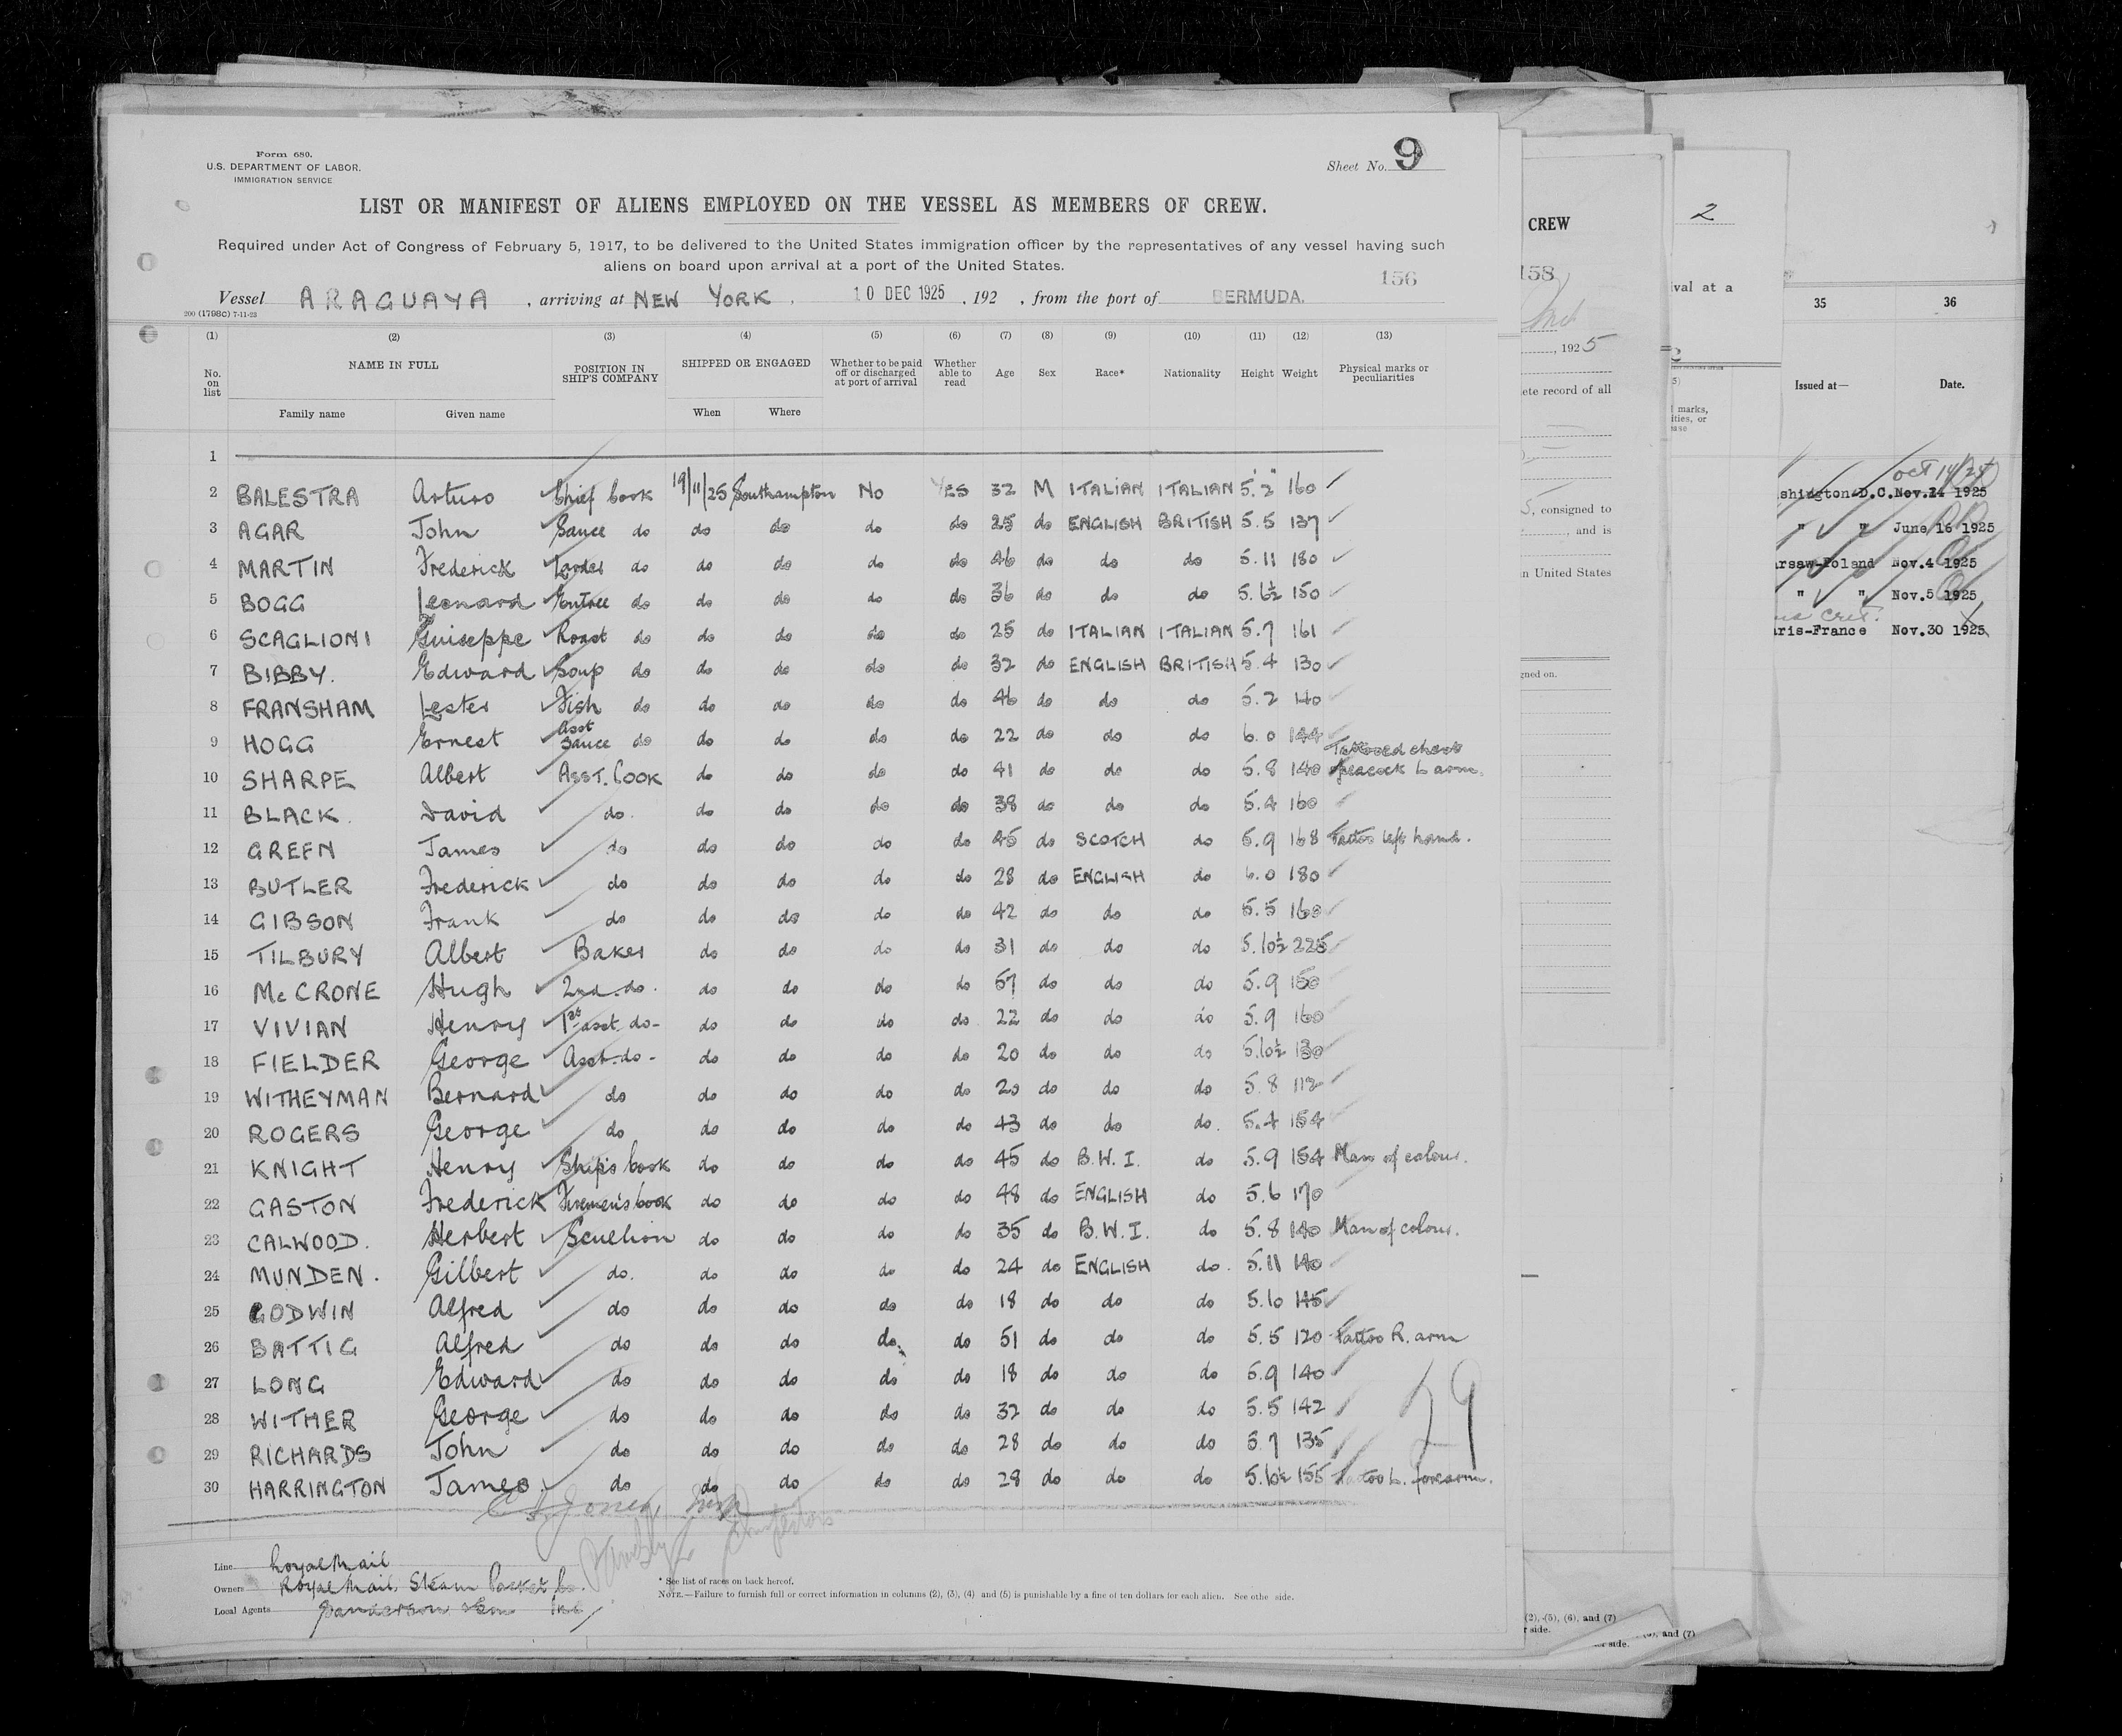 Form 680.
U.S. DEPARTMENT OF LABOR.
IMMIGRATION SERVICE
Sheet No. 9
LIST OR MANIFEST OF ALIENS EMPLOYED ON THE VESSEL AS MEMBERS OF CREW.
Required under Act of Congress of February 5, 1917, to be delivered to the United States immigration officer by the representatives of any vessel having such
aliens on board upon arrival at a port of the United States.
156
Vessel ARAGUAYA , arriving at NEW YORK , 10 DEC 1925 , 192 , from the port of BERMUDA.
200 (1798c) 7-11-23
(1) (2) (3) (4) (5) (6) (7) (8) (9) (10) (11) (12) (13)
No. on list NAME IN FULL POSITION IN SHIP'S COMPANY SHIPPED OR ENGAGED Whether to be paid off or discharged at port of arrival Whether able to read Age Sex Race* Nationality Height Weight Physical marks or peculiarities
Family name Given name When Where
1
2 BALESTRA Arturo Chief Cook 19/11/25 Southampton No YES 32 M ITALIAN ITALIAN 5.2 160
3 AGAR John Sauce do do do do do 25 do ENGLISH BRITISH 5.5 137
4 MARTIN Frederick Larder do do do do do 46 do do do 5.11 180
5 BOGG Leonard Entree do do do do do 36 do do do 5.6½ 150
6 SCAGLIONI Guiseppe Roast do do do do do 25 do ITALIAN ITALIAN 5.7 161
7 BIBBY. Edward Soup do do do do do 32 do ENGLISH BRITISH 5.4 130
8 FRANSHAM Lester Fish do do do do do 46 do do do 5.2 140
9 HOGG Ernest Asst Sauce do do do do do 22 do do do 6.0 144
10 SHARPE Albert ASST. COOK do do do do 41 do do do 5.8 140 Tattooed chest peacock L arm.
11 BLACK. David do. do do do do 38 do do do 5.4 160
12 GREEN James do do do do do 45 do SCOTCH do 5.9 168 Tattoo left hand.
13 BUTLER Frederick do do do do do 28 do ENGLISH do 6.0 180
14 GIBSON Frank do do do do do 42 do do do 5.5 160
15 TILBURY Albert Baker do do do do 31 do do do 5.10½ 225
16 McCRONE Hugh 2nd do. do do do do 57 do do do 5.9 150
17 VIVIAN Henry 1st asst. do- do do do do 22 do do do 5.9 160
18 FIELDER George Asst. do- do do do do 20 do do do 5.10½ 130
19 WITHEYMAN Bernard do do do do do 20 do do do 5.8 112
20 ROGERS George do do do do do 43 do do do. 5.4 154
21 KNIGHT Henry Ship's Cook do do do do 45 do B.W.I. do 5.9 154 Man of colour.
22 GASTON Frederick Firemen's Cook do do do do 48 do ENGLISH do 5.6 170
23 CALWOOD. Herbert Scullion do do do do 35 do B.W.I. do 5.8 140 Man of colour.
24 MUNDEN. Gilbert do. do do do do 24 do ENGLISH do. 5.11 140
25 GODWIN Alfred do do do do do 18 do do do 5.10 145
26 BATTIG Alfred do do do do. do 51 do do do 5.5 120 Tattoo R. arm
27 LONG Edward do do do do do 18 do do do 5.9 140
28 WITHER George do do do do do 32 do do do 5.5 142
29 RICHARDS John do do do do do 28 do do do 5.7 135
30 HARRINGTON James do do do do do 28 do do do 5.10½ 155 Tattoo L. forearm.
29
Jones,
Line Royal Mail
Owners Royal Mail Steam Packet Co.
Local Agents Sanderson & Son Inc
* See list of races on back hereof.
NOTE.—Failure to furnish full or correct information in columns (2), (3), (4) and (5) is punishable by a fine of ten dollars for each alien. See other side.
CREW
158
, 1925
ete record of all
5, consigned to
, and is
n United States
gned on.
(2), (5), (6), and (7)
r side.
2
ival at a
marks,
ities, or
ease
, and (7)
side.
35 36
Issued at— Date.
Oct 14/24
shington D.C. Nov.24 1925
" " June 16 1925
rsaw-Poland Nov.4 1925
" " Nov.5 1925
ris-France Nov.30 1925